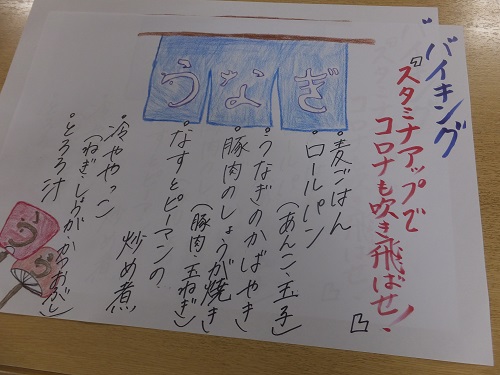 バイキング
『スタミナアップで
コロナも吹き飛ばせ!
』
うなぎ
•麦ごはん
•ロールパン
(あんこ・玉子)
•うなぎのかばやき
•豚肉のしょうが焼き
(豚肉・玉ねぎ)
•なすとピーマンの
炒め煮
•冷ややっこ
(ねぎ・しょうが・かつおぶし)
•とろろ汁
う